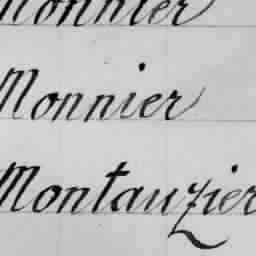 Monnier
Monnier
Montauzier